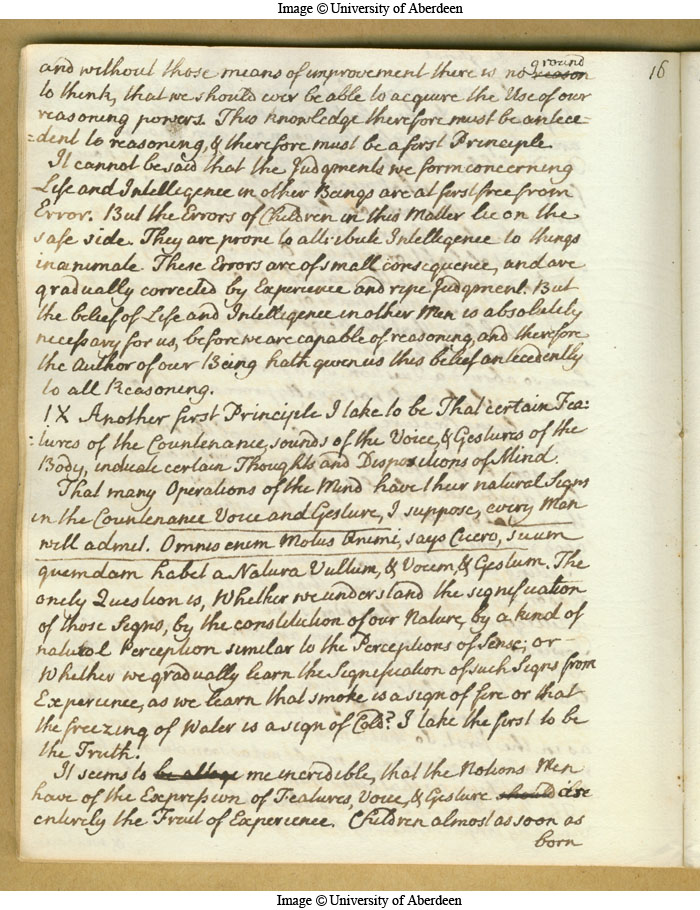 Image © University of Aberdeen
16
and without those means of improvement there is no reason ground
to think, that we should ever be able to acquire the Use of our
reasoning powers. This knowledge therefore must be antece=
=dent to reasoning, & therefore must be a first Principle
It cannot be said that the Judgments we form concerning
Life and Intelligence in other Beings are at first free from
Error. But the Errors of Children in this Matter lie on the
safe side. They are prone to attribute Intellegence to things
inanimate These Errors are of small consequence, and are
gradually corrected by Experience and ripe Judgment. But
the belief of Life and Intelligence in other Men is absolutely
necessary for us, before we are capable of reasoning, and therefore
the Author of our Being hath given us this belief antecedently
to all Reasoning.
IX Another first Principle I take to be That certain Fea=
=tures of the Countenance, sounds of the Voice, & Gestures of the
Body, indicate certain Thoughts and Dispositions of Mind.
That many Operations of the Mind have their natural Signs
in the Countenance Voice and Gesture, I suppose, every Man
will admit. Omnis enim Motus Animi, says Cicero, suum
quemdam habet a Natura Vultum, & Vocem, & Gestum. The
onely Question is, Whether we understand the signification
of those Signs, by the constitution of our Nature, by a kind of
natural Perception similar to the Perceptions of Sense; or
Whether we gradually learn the Signification of such Signs from
Experience, as we learn that smoke is a sign of fire or that
the freezing of Water is a sign of Cold? I take the first to be
the Truth.
It seems to me incredible, that the Notions Men
have of the Expression of Features, Voice, & Gesture should are
entirely the Fruit of Experience. Children almost as soon as
born
Image © University of Aberdeen